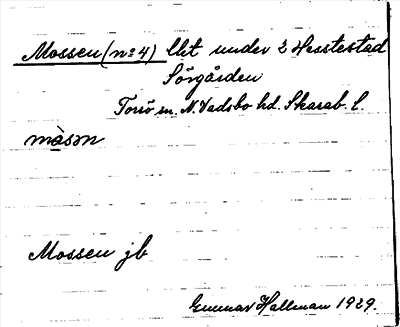 Mossen (nº 4) lht under 2 Hesstestad
Sörgården
Torsö sn. N. Vadsbo hd. Skarab. l.
màsən
Mossen jb
Gunnar Hallman 1929.